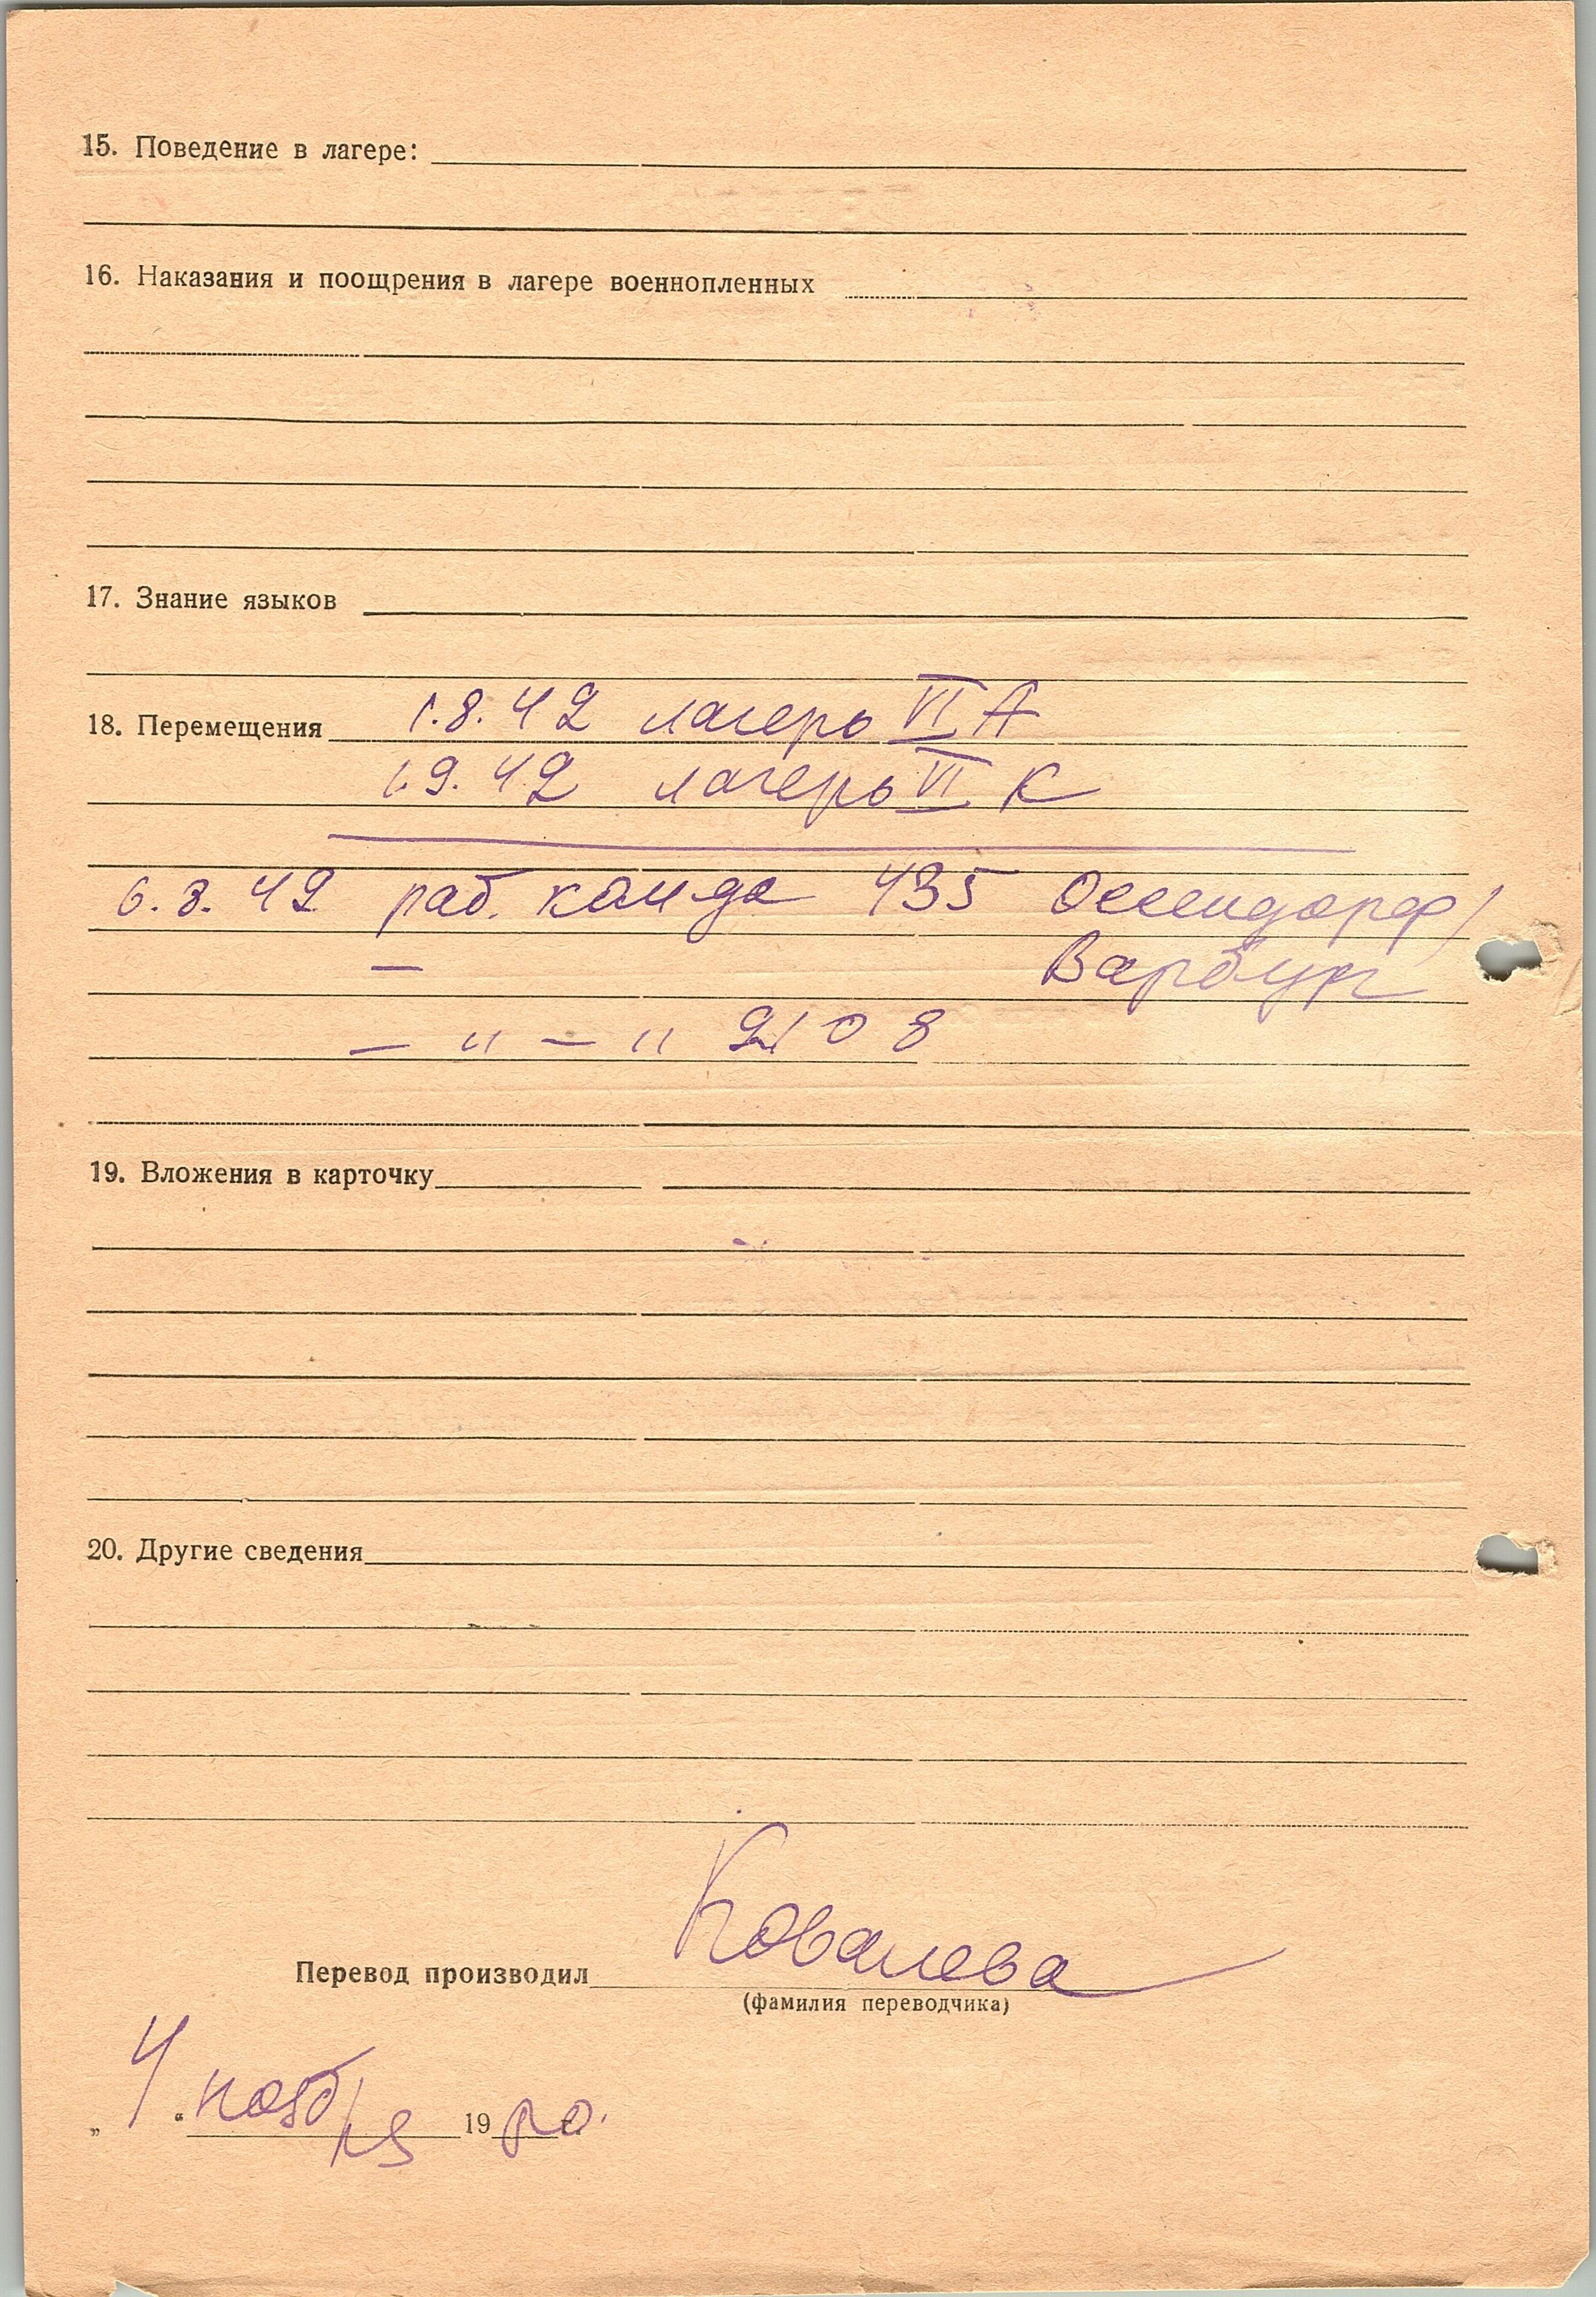 15. Поведение в лагере:
16. Наказания и поощрения в лагере военнопленных
17. Знание языков
18. Перемещения 1.8.42 лагерь VI А
1.9.42 лагерь VI К
6.8.42 раб. кот да 435 Оссендорф/
Варбург
— " — " 2108
19. Вложения в карточку
20. Другие сведения
Перевод производил Ковалева
(фамилия переводчика)
„ 4 “ ноября 19